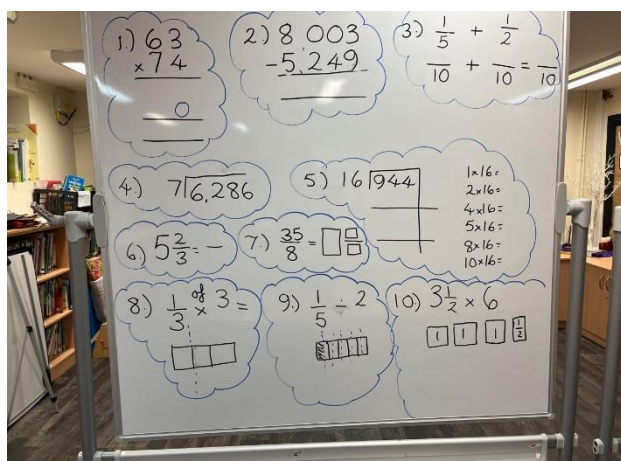 1.) 63
×74
0
2.) 8 003
-5,249
3.) 1/5 + 1/2
/10 + /10 = /10
4.) 7⟌6,286
5.) 16⟌944
1×16=
2×16=
4×16=
5×16=
8×16=
10×16=
6.) 5 2/3 = –
7.) 35/8 = □ □/□
8.) 1/3 of × 3 =
9.) 1/5 ÷ 2
10) 3 1/2 × 6
1 1 1 1/2